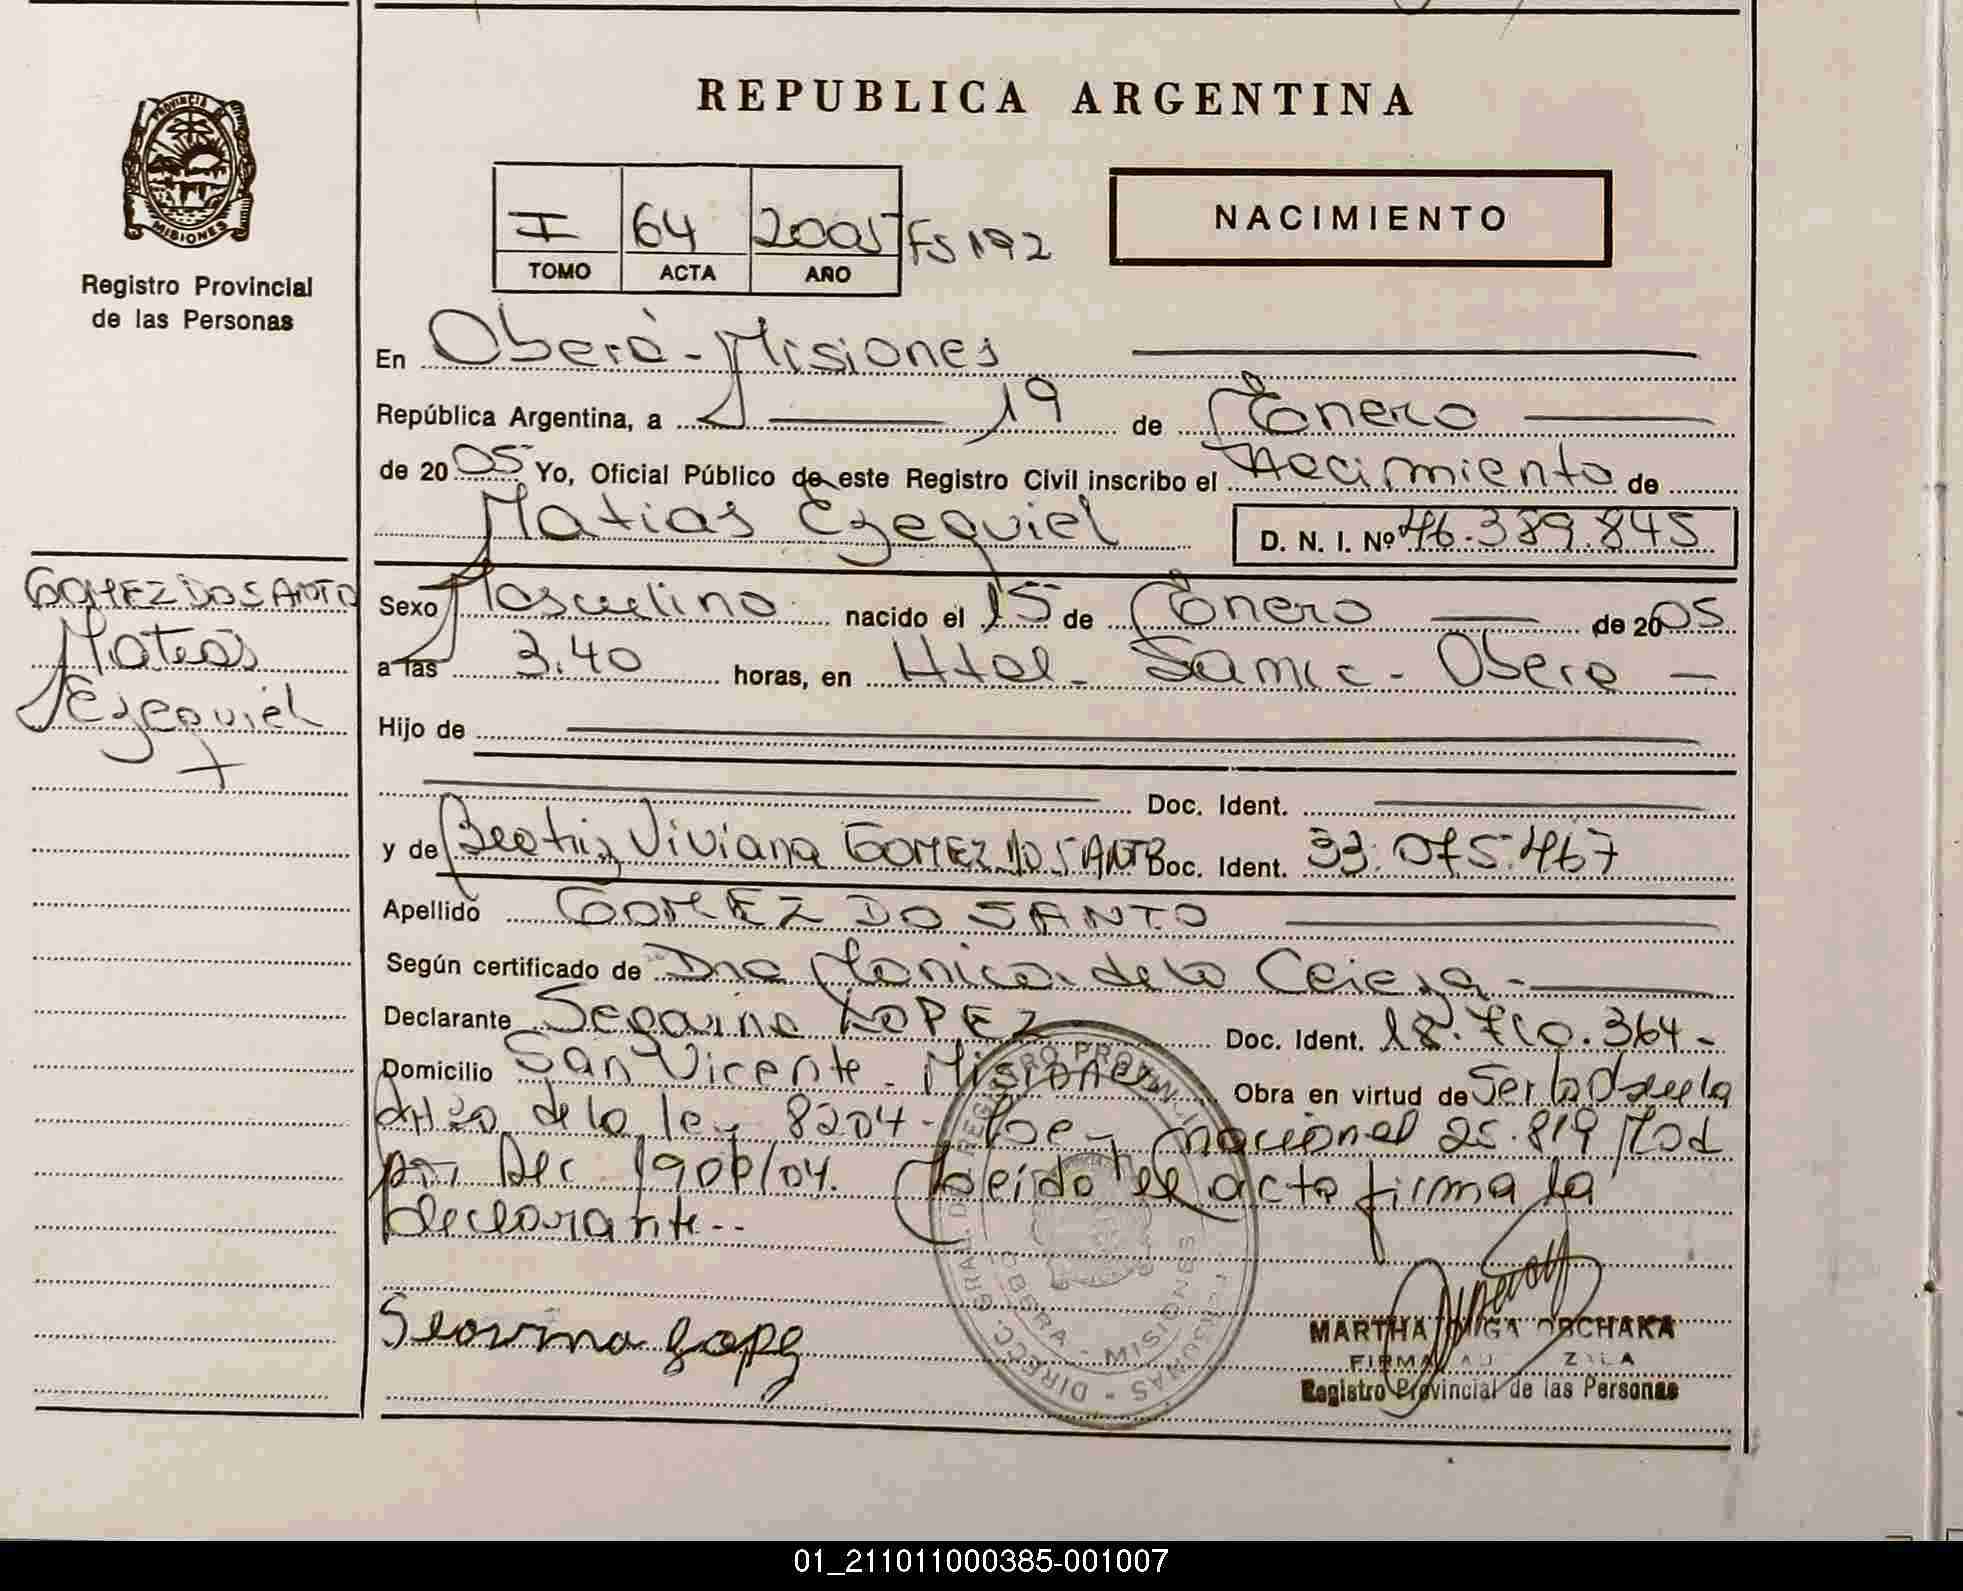 REPUBLICA ARGENTINA
PROVINCIA
MISIONES
Registro Provincial
de las Personas
I 64 2005 Fs 192
TOMO ACTA AÑO
NACIMIENTO
En Oberá - Misiones
República Argentina, a 19 de Enero
de 2005 Yo, Oficial Público de este Registro Civil inscribo el Nacimiento de
Matias Ezequiel D. N. I. Nº 46.389.845
GOMEZ DO SANTO
Matias
Ezequiel
Sexo Masculino nacido el 15 de Enero de 2005
a las 3.40 horas, en Htal - Samic - Obera
Hijo de
Doc. Ident.
y de Beatriz Viviana GOMEZ DO SANTO Doc. Ident. 33.075.467
Apellido GOMEZ DO SANTO
Según certificado de Dra Monica de la
Declarante LOPEZ Doc. Ident. 18.710.364-
Domicilio San Vicente - Misiones Obra en virtud de Ser la Abuela
de la ley 8204 - nacional 25.819 Mod
por Dec 1906/04. Leido el acta firma la
declarante--
DIRECC. GRAL. DEL REGISTRO PROVINCIAL PERSONAS
OBERA - MISIONES
MARTHA OLGA
FIRMA
Registro Provincial de las Personas
01_211011000385-001007